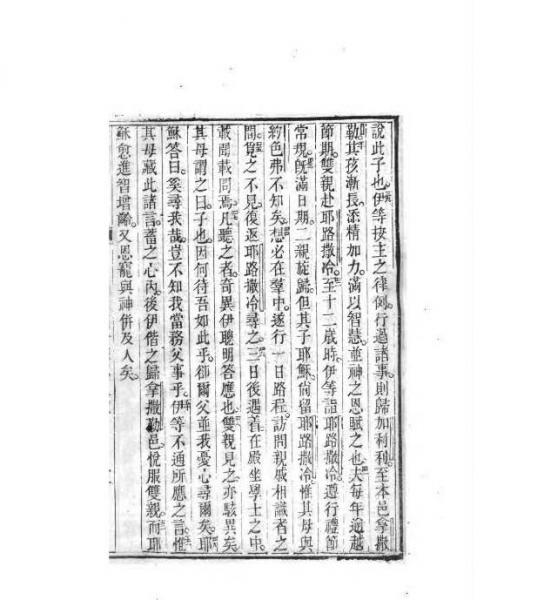 說此子也。伊等按主之律例。行過諸事。則歸加利利。至本邑拿撒
勒。其孩漸長。添精加力。滿以智慧。並神之恩賦之也。夫每年逾越
節期。雙親赴耶路撒冷。至十二歲時。伊等詣耶路撒冷。遵行禮節
常規。旣滿日期。二親旋歸。但其子耶穌。尙留耶路撒冷。惟其母與
約色弗不知矣。想必在羣中。遂行一日路程。訪問親戚相識者之
間。覓之不見。復返耶路撒冷尋之。三日後遇着在殿坐學士之中。
載聞載問焉。凡聽之者。奇異伊聰明答應也。雙親見之。亦駭異矣。
其母謂之曰。子也。因何待吾如此乎。卻爾父並我憂心尋爾矣。耶
穌答曰。奚尋我哉。豈不知我當務父事乎。伊等不通所應之言。惟
其母藏此諸言。蓄之心內。後伊偕之歸拿撒勒邑。悅服雙親。而耶
穌愈進智增齡。又恩寵與神併及人矣。